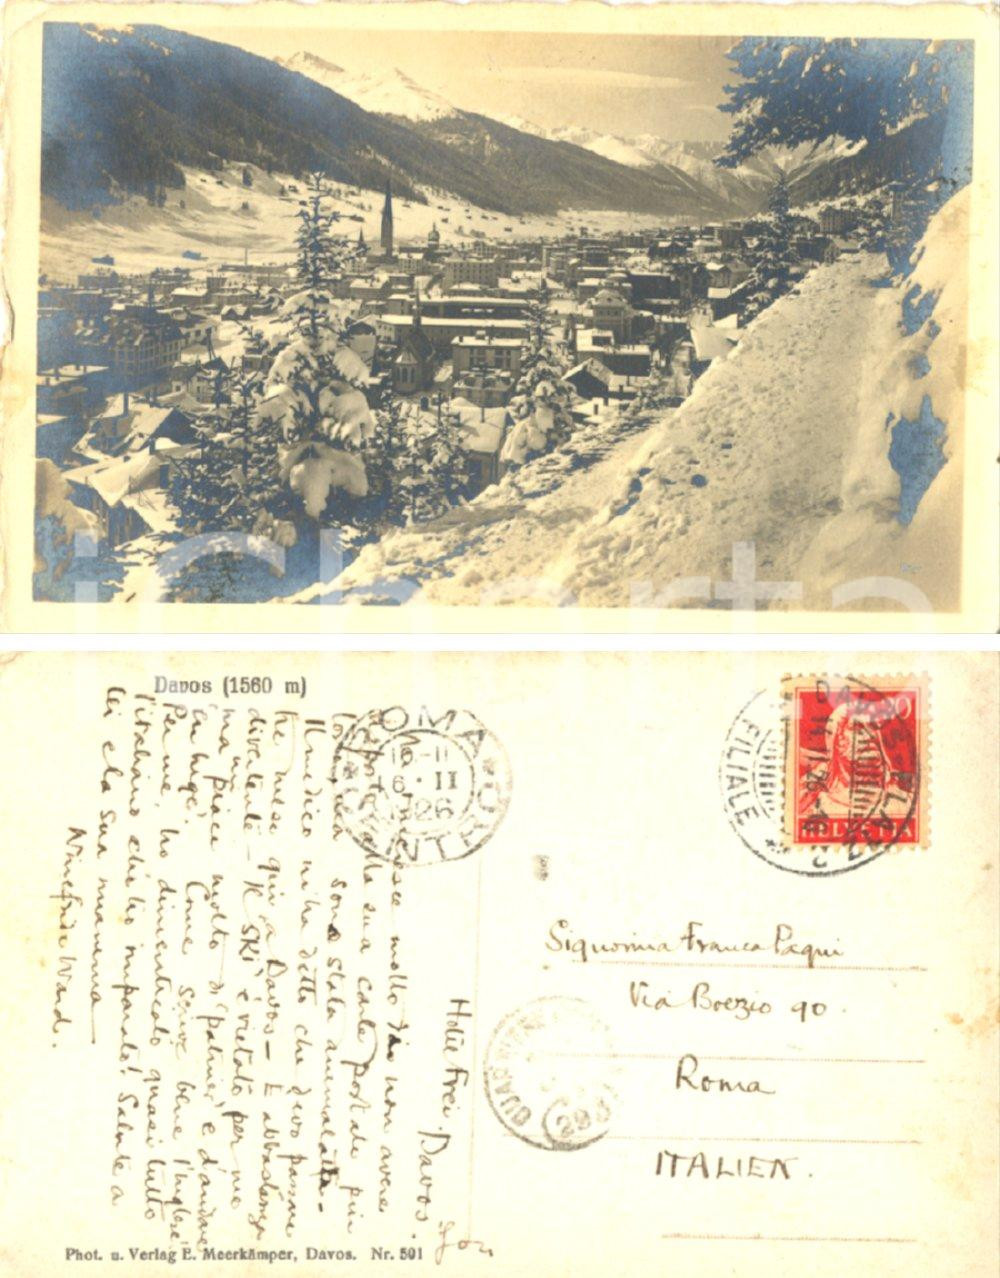 Davos (1560 m)
Hotel Frei. Davos.
mi rincresce molto di non avere
risposto alla sua carta postale più
sono stata ammalata -
Il medico m'ha detto che devo passare
tre mesi qui a Davos - È abbastanza
divertente - Il SKI è vietato per me
ma mi piace molto di "patiner" e d'andare
en luge. Come scrive bene l'inglese!
Per me, ho dimenticato quasi tutto
l'italiano che ho imparato! Salute a
lei e la sua mamma
Winefride Ward.
Phot. u. Verlag E. Meerkämper, Davos. Nr. 501
ROMA CENTRO
6 · II
26
DAVOS-PLATZ
14.II.26
FILIALE
20
HELVETIA
Signorina Franca Pagni
Via Boezio 90.
Roma
ITALIEN.